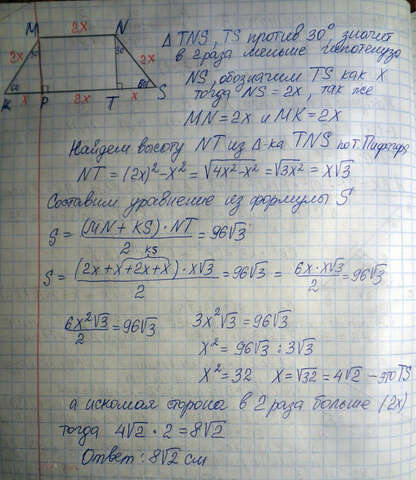 M 2x N
Δ TNS, TS против 30°, значит
в 2 раза меньше гипотенузы
2x 30 30 2x
NS, обозначим TS как x
60 60
K x P 2x T x S
тогда NS = 2x, так же
MN = 2x и MK = 2x
Найдем высоту NT из Δ-ка TNS по т. Пифагора
NT = (2x)² - x² = √4x² - x² = √3x² = x√3
Составим уравнение из формулы S
S = (MN + KS) · NT / 2 = 96√3
KS
S = (2x + x + 2x + x) · x√3 / 2 = 96√3 = 6x · x√3 / 2 = 96√3
6x²√3 / 2 = 96√3 3x²√3 = 96√3
x² = 96√3 : 3√3
x² = 32 x = √32 = 4√2 - это TS
а искомая сторона в 2 раза больше (2x)
тогда 4√2 · 2 = 8√2
Ответ: 8√2 см